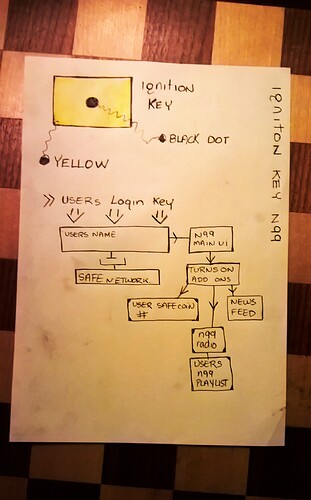 Ignition
KEY
BLACK DOT
YELLOW
IgnitIoN KEY N99
>> USERS Login Key
USERS NAME
N99
MAIN UI
SAFE NETWORK.
TURNS ON
ADD ONS
USER SAFECOIN
#
NEWS
FEED
n99
radio
USERS
n99
PLAYLIST